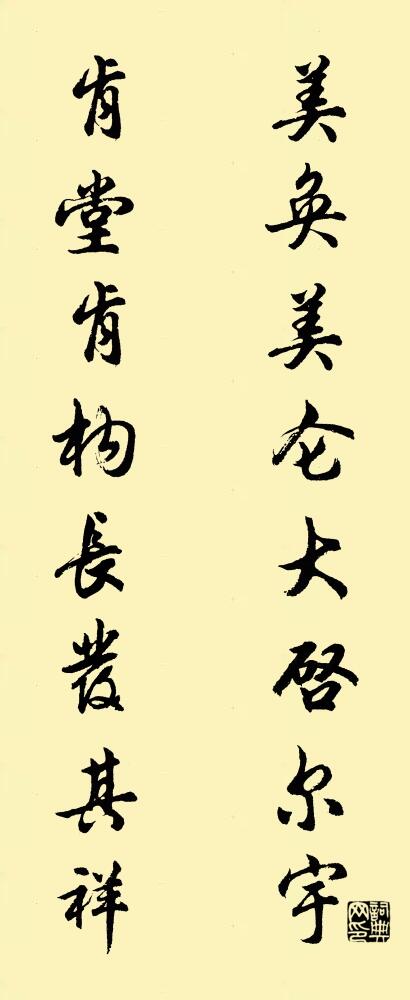 美奂美仑大啓尔宇
肯堂肯构長發其祥
詞典网印